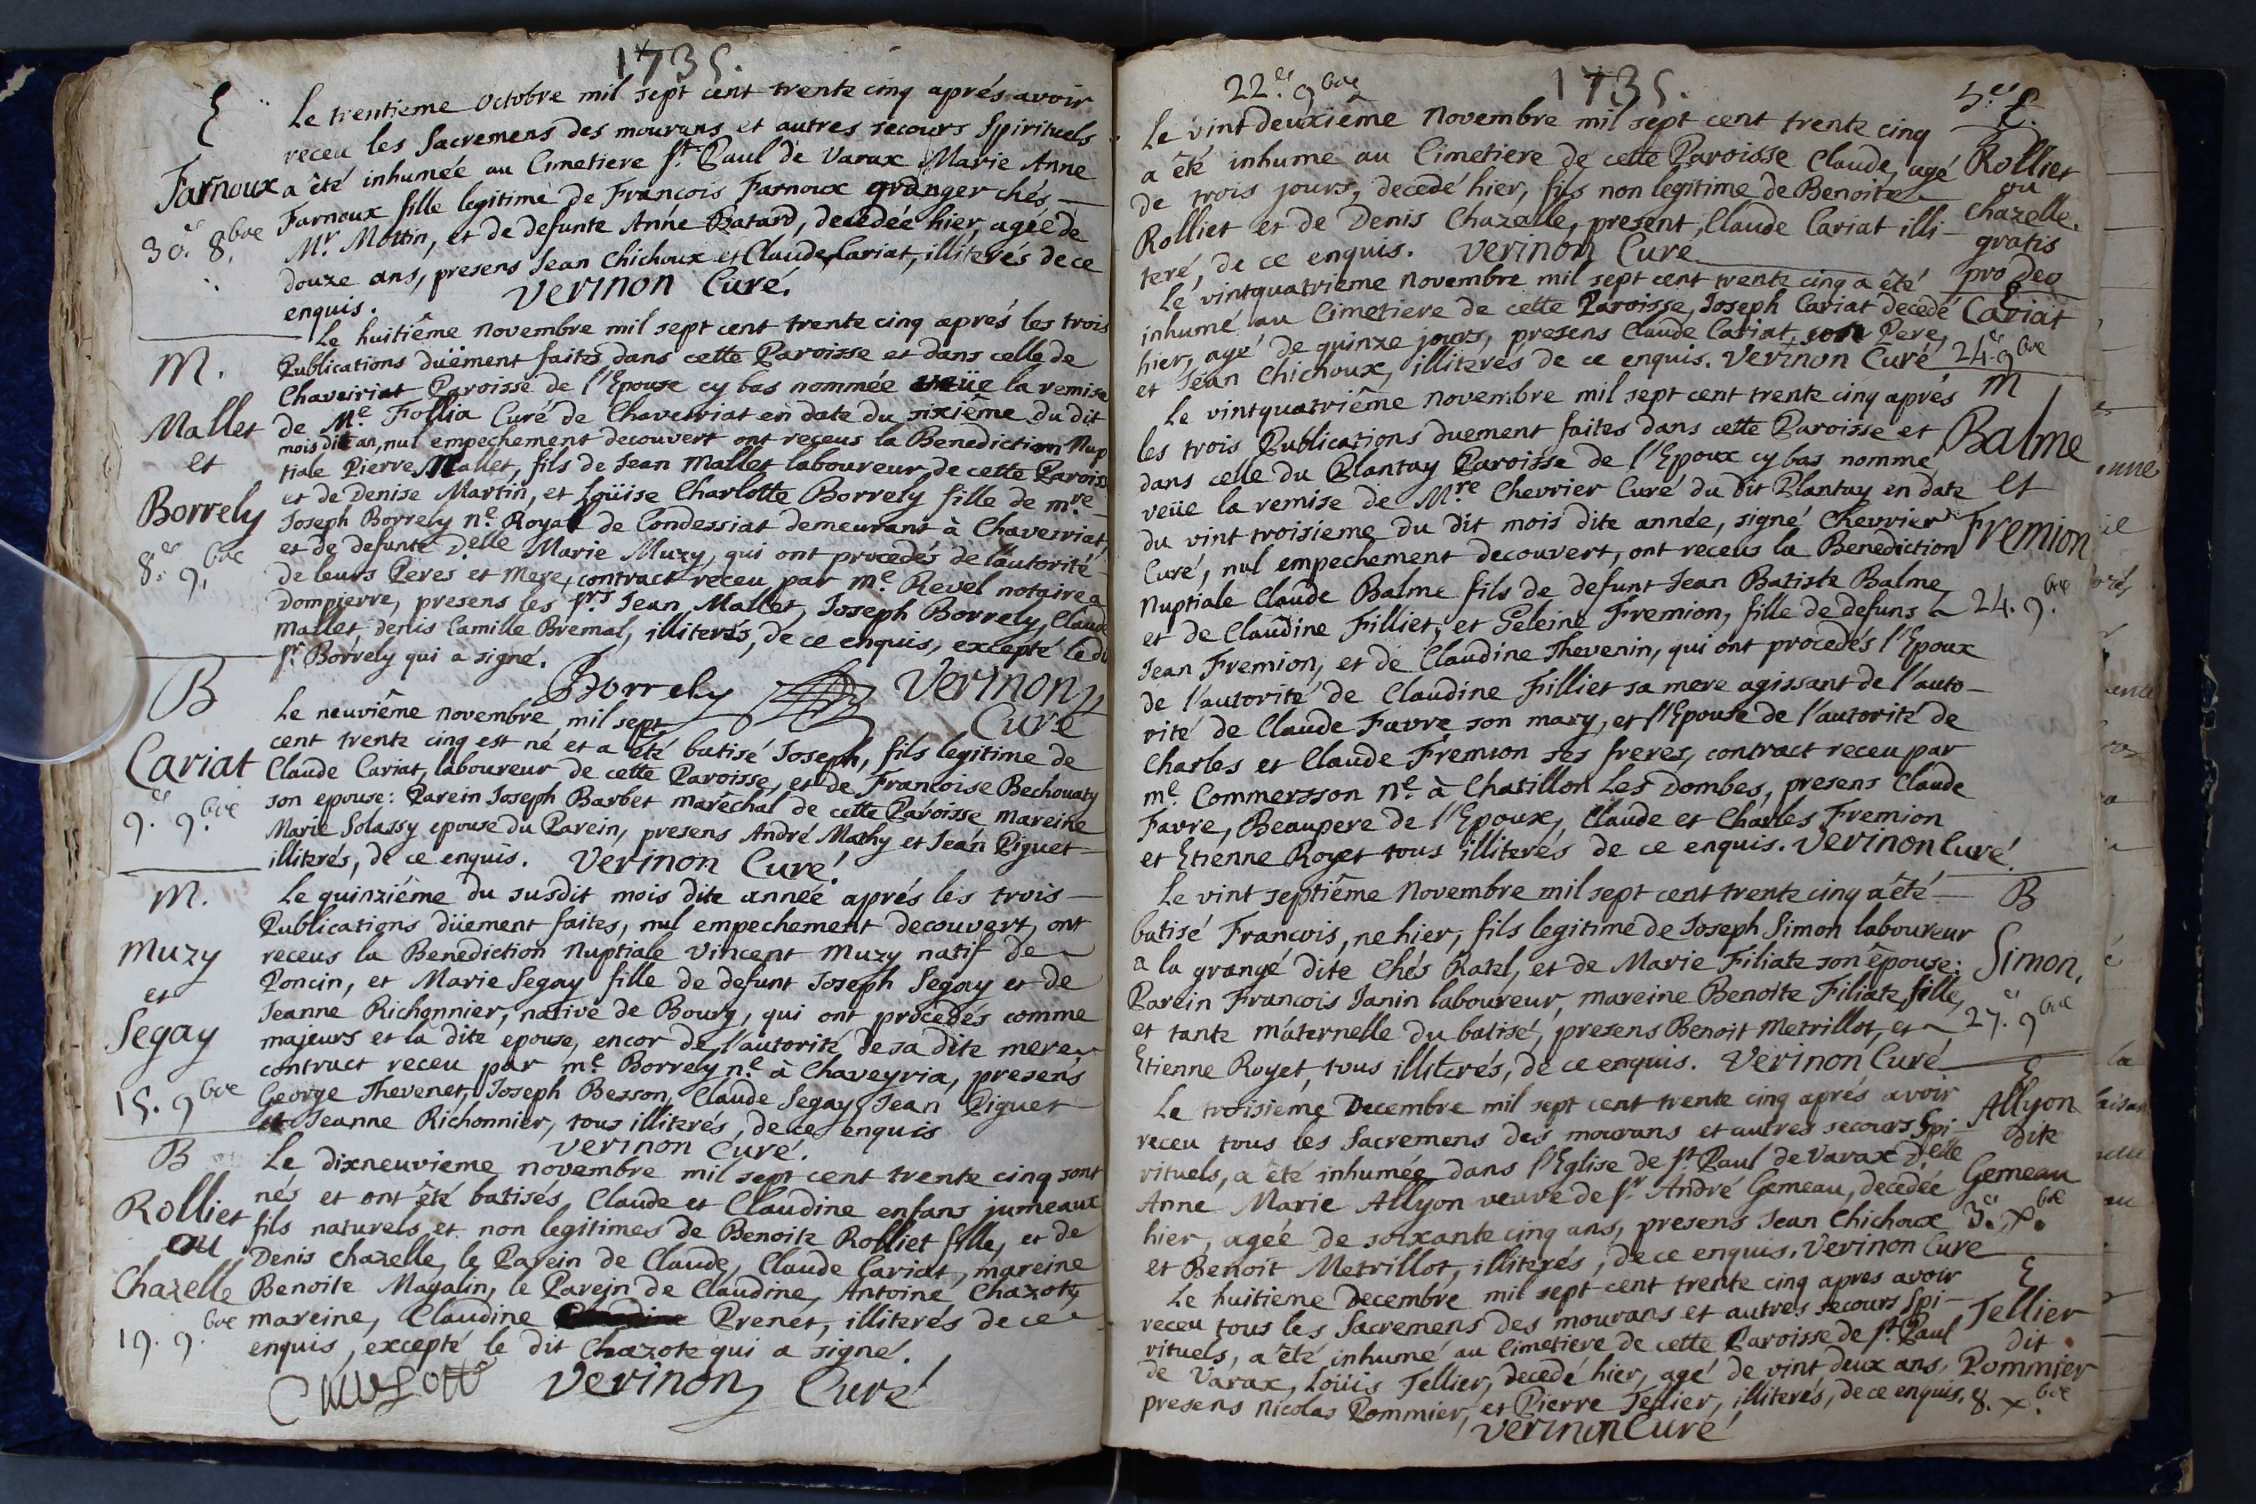 1735.
Le trentieme octobre mil sept cent trente cinq aprés avoir
receu les Sacremens des mourans et autres secours Spirituels
Farnoux a été inhumée au Cimetiere St Paul de Varax Marie Anne
Farnoux fille legitime de Francois Farnoux granger chés
30e 8bre Mr. Mottin, et de defunte Anne Batard, decedée hier, agée de
douze ans, presens Jean Chichoux et Claude Cariat, illiterés de ce
enquis. Verinon Curé.
Le huitiême novembre mil sept cent trente cinq aprés les trois
M. Publications duëment faites dans cette Paroisse et dans celle de
Chaveiriat Paroisse de l'Epouse cy bas nommée veüe la remise
Mallet de Me Follia Curé de Chaveiriat en date du sixiême du dit
mois dit an, nul empechement decouvert ont receus la Benediction Nup
et tiale Pierre Mallet, fils de Jean Mallet laboureur de cette Parois
et de Denise Martin, et Loüise Charlotte Borrely fille de mre
Borrely Joseph Borrely ne Royal de Condessiat demeurant à Chaveiriat
et de defunte Delle Marie Muzy, qui ont procedés de l'autorité
8e 9bre de leurs Peres et Mere, contract receu par me Revel notaire a
Dompierre, presens les srs Jean Mallet, Joseph Borrely, Claude
Mallet, Denis Camille Bremal, illiterés, de ce enquis, excepté le du
sr. Borrely qui a signé.
Borrely Verinon
Curé
B Le neuviême novembre mil sept
cent trente cinq est né et a été batisé Joseph, fils legitime de
Cariat Claude Cariat, laboureur de cette Paroisse, et de Francoise Bechouaty
son epouse: Parein Joseph Barbet maréchal de cette Paroisse mareine
9e 9bre Marie Solassy epouse du Parein, presens André Mathy et Jean Piguet
illiterés, de ce enquis. Verinon Curé.
M. Le quinziême du susdit mois dite année aprés les trois
Publications düement faites, nul empechement decouvert, ont
Muzy receus la Benediction Nuptiale Vincent Muzy natif de
et Poncin, et Marie Segay fille de defunt Joseph Segay et de
Segay Jeanne Richonnier, native de Bourg, qui ont procedés comme
majeurs et la dite epouse, encor de l'autorité de sa dite mere
contract receu par me Borrely ne à Chaveyria, presens
15. 9bre George Thevenet, Joseph Besson, Claude Segay, Jean Piguet
et Jeanne Richonnier, tous illiterés, de ce enquis
Verinon Curé.
B Le dixneuvieme novembre mil sept cent trente cinq sont
nés et ont été batisés, Claude et Claudine enfans jumeaux
Rolliet fils naturels et non legitimes de Benoite Rolliet fille, et de
ou Denis Chazelle, le Parein de Claude, Claude Cariat, mareine
Chazelle Benoite Magalin, le Parein de Claudine, Antoine Chazote,
mareine, Claudine Prenet, illiterés de ce
19. 9bre enquis, excepté le dit Chazote qui a signé.
Verinon Curé
22e 9bre 1735.
Le vint deuxiême Novembre mil sept cent trente cinq
a été inhumé au Cimetiere de cette Paroisse Claude, agé Rolliet
de trois jours, decedé hier, fils non legitime de Benoite ou
Rolliet et de Denis Chazelle, present, Claude Cariat illi- Chazelle.
teré, de ce enquis. Verinon Curé gratis
pro Deo
Le vintquatrieme Novembre mil sept cent trente cinq a été
inhumé au Cimetiere de cette Paroisse, Joseph Cariat decedé Cariat
hier, agé de quinze jours, presens Claude Cariat, son Pere,
et Jean Chichoux, illiterés de ce enquis. Verinon Curé 24e 9bre
Le vintquatriême Novembre mil sept cent trente cinq aprés M
les trois Publications duement faites dans cette Paroisse et Balme
dans celle du Plantay Paroisse de l'Epoux cy bas nommé,
veüe la remise de Mre Chevrier Curé du dit Plantay en date et
du vint troisieme du dit mois dite année, signé Chevrier Fremion
Curé, nul empechement decouvert, ont receus la Benediction
Nuptiale Claude Balme fils de defunt Jean Batiste Balme
et de Claudine Filliet, et Geleine Fremion, fille de defuns 24. 9bre
Jean Fremion, et de Claudine Thevenin, qui ont procedés l'Epoux
de l'autorité de Claudine Filliet sa mere agissant de l'auto-
rité de Claude Favre son mary, et l'Epouse de l'autorité de
Charles et Claude Fremion ses freres, contract receu par
me. Commersson ne. à Chatillon Les Dombes, presens Claude
Favre, Beaupere de l'Epoux, Claude et Charles Fremion
et Etienne Royet tous illiterés de ce enquis. Verinon Curé.
Le vint septiême Novembre mil sept cent trente cinq a été B
batisé Francois, ne hier, fils legitime de Joseph Simon laboureur
a la grange dite Chés Ratel, et de Marie Filiate son épouse: Simon,
Parein Francois Janin laboureur, mareine Benoite Filiate fille,
et tante maternelle du batisé, presens Benoit Metrillot, et 27e 9bre
Etienne Royet, tous illiterés, de ce enquis. Verinon Curé
Le troisieme Decembre mil sept cent trente cinq aprés avoir Allyon
receu tous les Sacremens des mourans et autres secours Spi- dite
rituels, a été inhumée dans l'Eglise de St Paul de Varax Delle Gemeau
Anne Marie Allyon veuve de sr André Gemeau, decedée
hier, agée de soixante cinq ans, presens Jean Chichoux 3e xbre
et Benoit Metrillot, illiterés, de ce enquis, Verinon Curé
Le huitieme Decembre mil sept cent trente cinq apres avoir
receu tous les Sacremens des mourans et autres secours Spi- Tellier
rituels, a été inhumé au Cimetiere de cette Paroisse de St. Paul dit
de Varax, Loüis Tellier, decedé hier, agé de vint deux ans, Pommier
presens Nicolas Pommier, et Pierre Tellier, illiterés, de ce enquis, 8. xbre
Verinon Curé